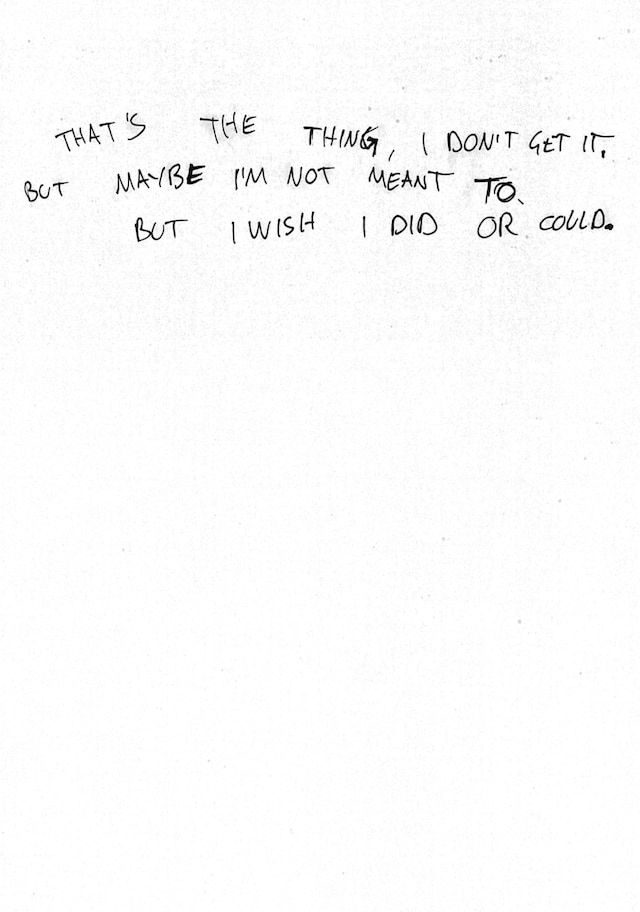 THAT'S THE THING, I DON'T GET IT,
BUT MAYBE I'M NOT MEANT TO.
BUT I WISH I DID OR COULD.